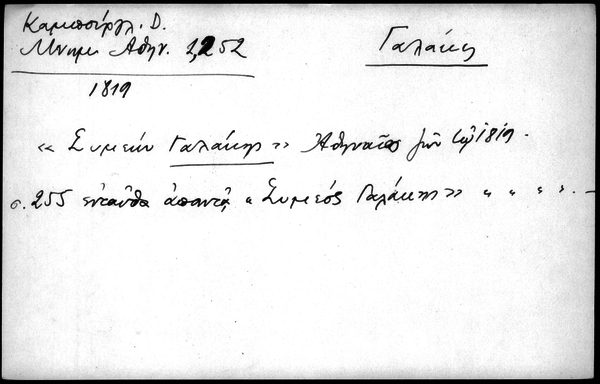 Καμπούργλ. Δ.
Μνημ. Αθην. 2,252
Γαλάκης
1819
« Συμεών Γαλάκης » Αθηναίος ζων τω 1819.
σ. 255 ενταύθα απαντά, « Συμεός Γαλάκης » " " " ". –